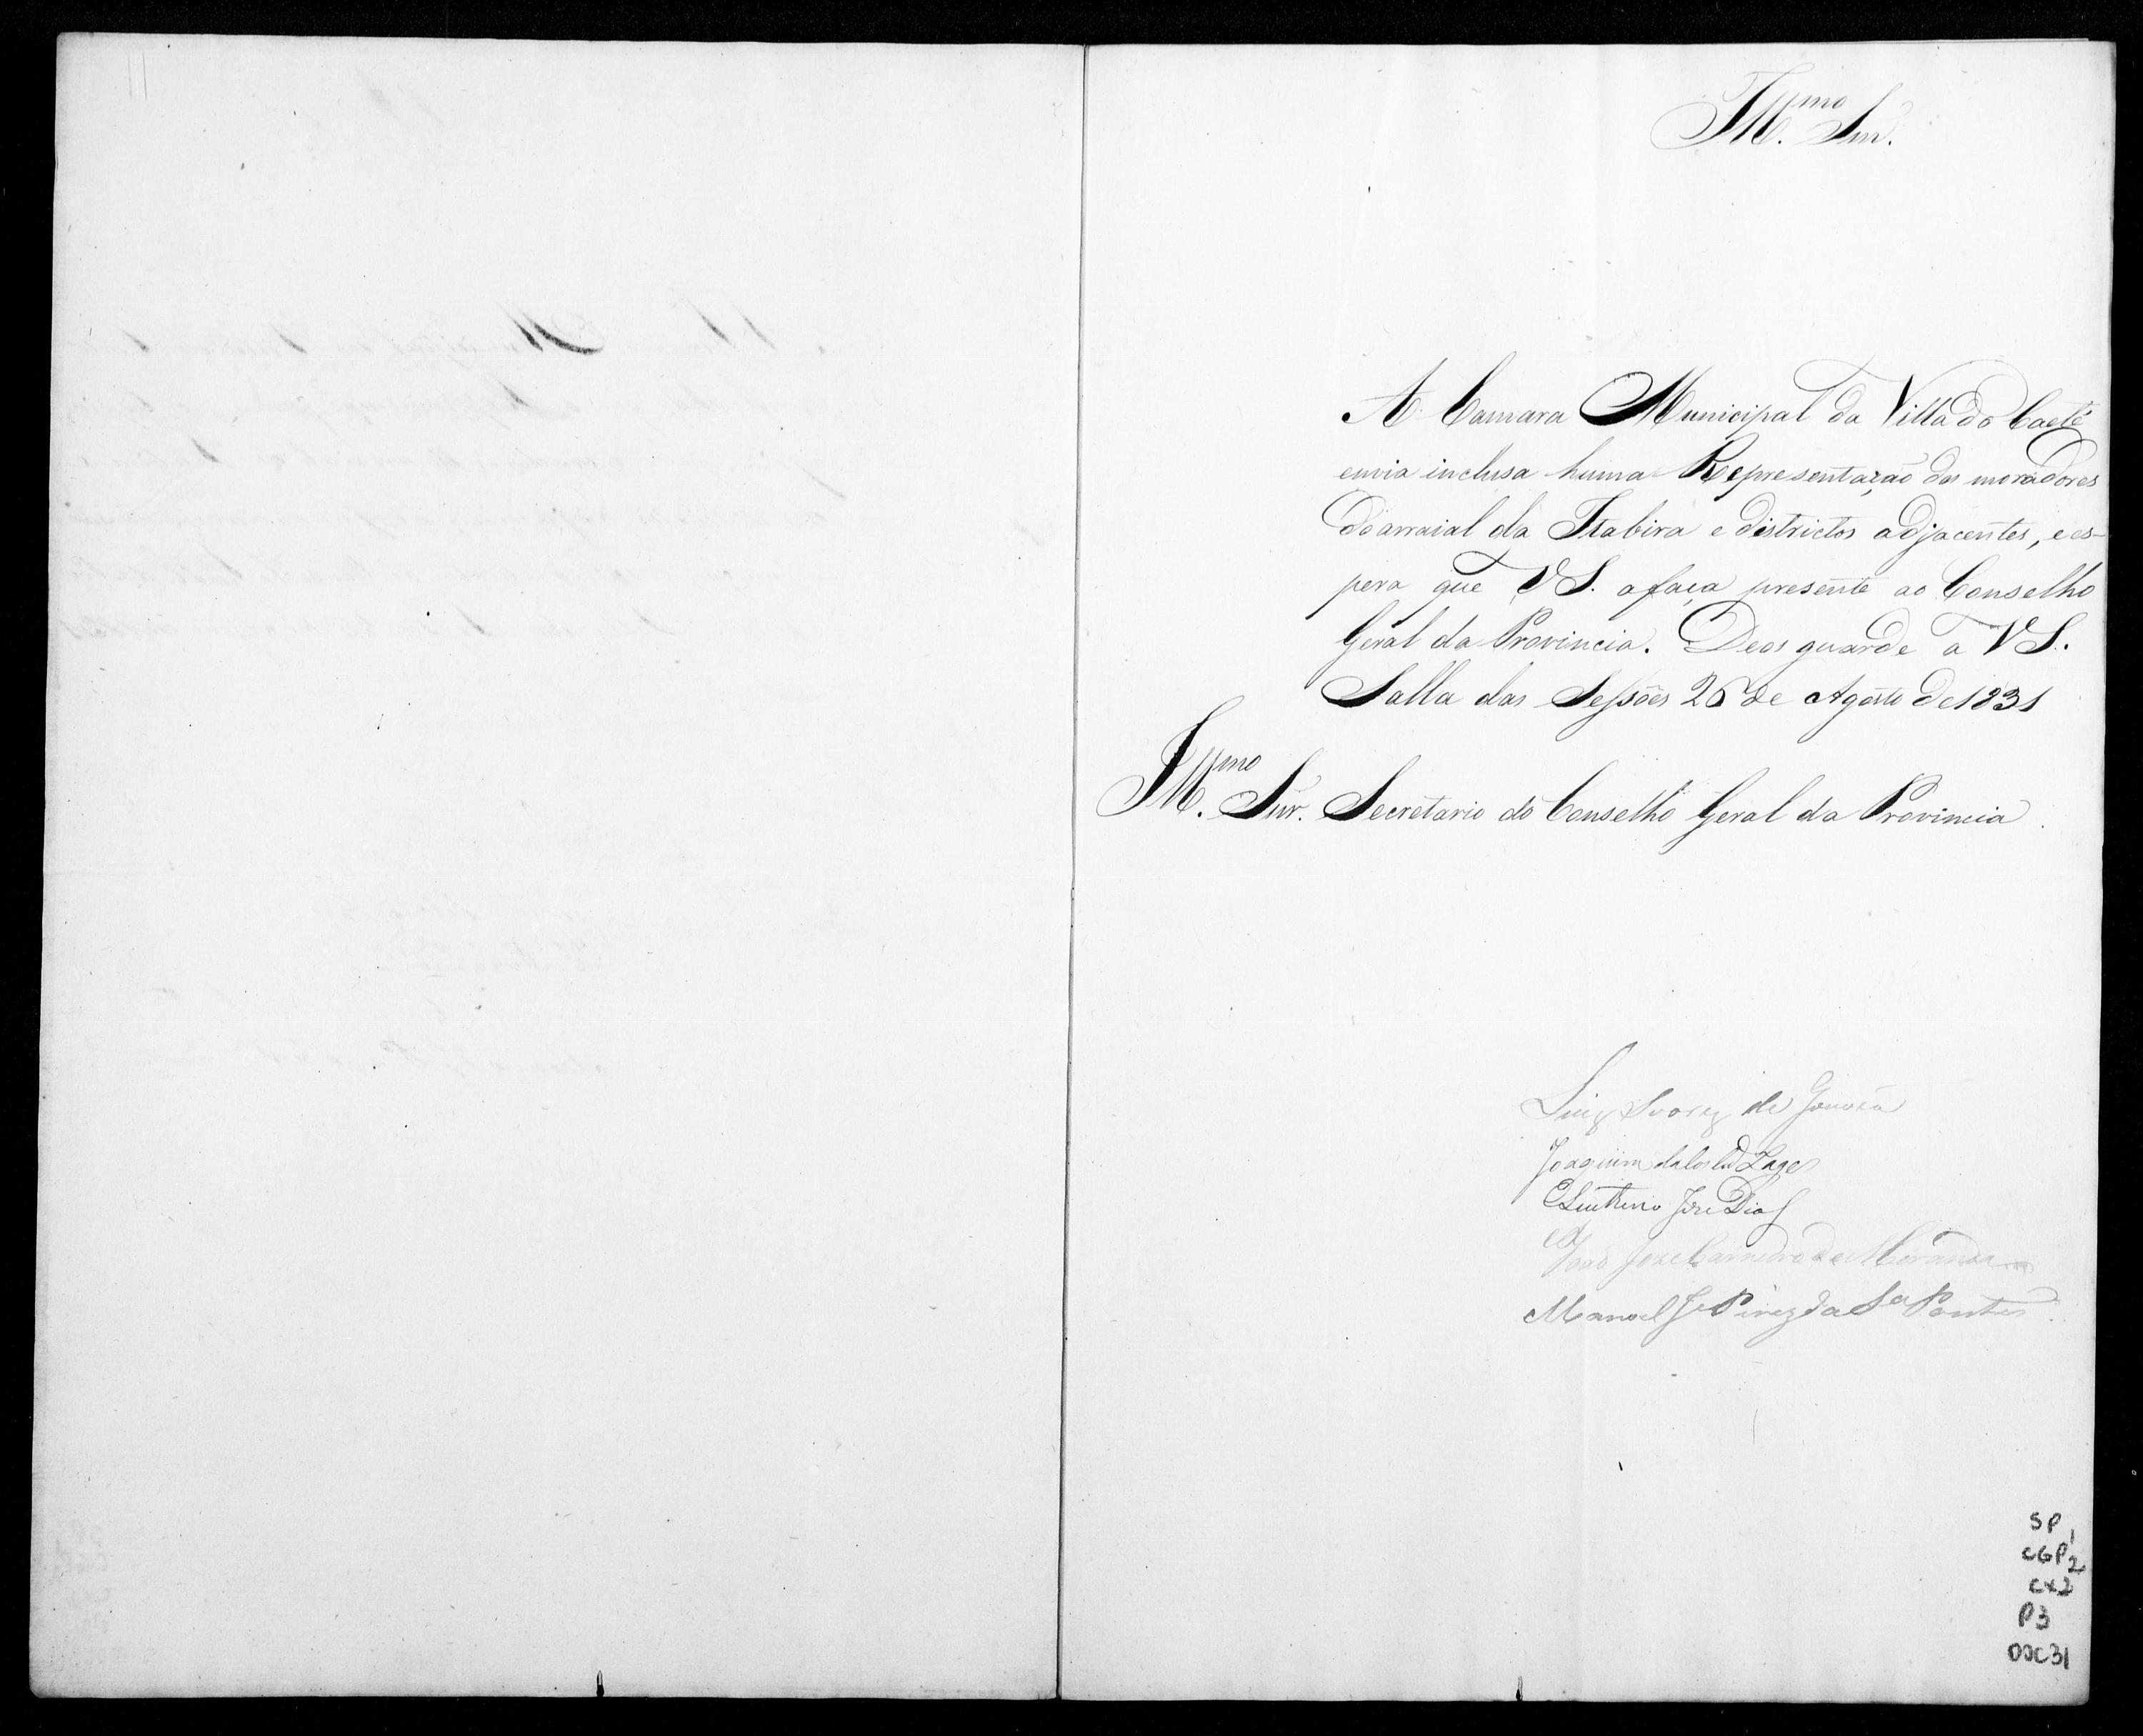 Ill.mo Snr.
A Camara Municipal da Villa do Caeté
envia inclusa huma Representação dos moradores
do arraial da Itabira e districtos adjacentes, e es-
pera que VS. a faça presente ao Conselho
Geral da Provincia. Deos guarde a VS.
Salla das Sessões 26 de Agosto de 1831
Ill.mo Snr. Secretario do Conselho Geral da Provincia
Luiz Soarez de Gouvêa
Joaquim da Costa Lage
Eleuterio José Dias
João Joze Carneiro de Miranda
Manoel Je Pirez da Sa Pontes
SP 1
CGP 2
CX2
P3
DOC31